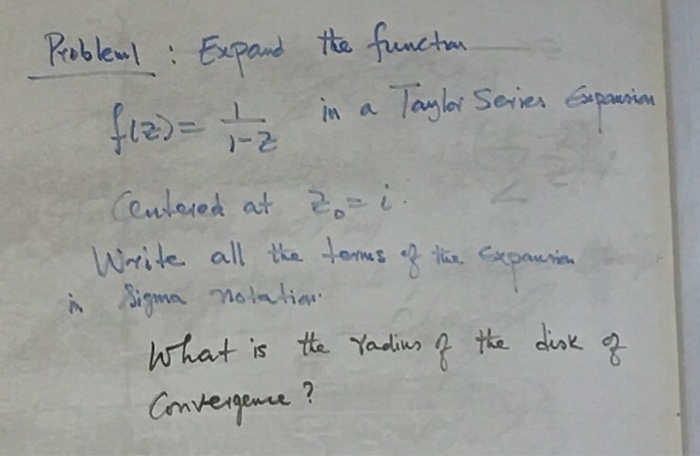 Problem 1 : Expand the function
f(z) = 1/(1-z) in a Taylor Series Expansion
Centered at z₀ = i.
Write all the terms of the Expansion
in Sigma notation.
What is the radius of the disk of
Convergence ?